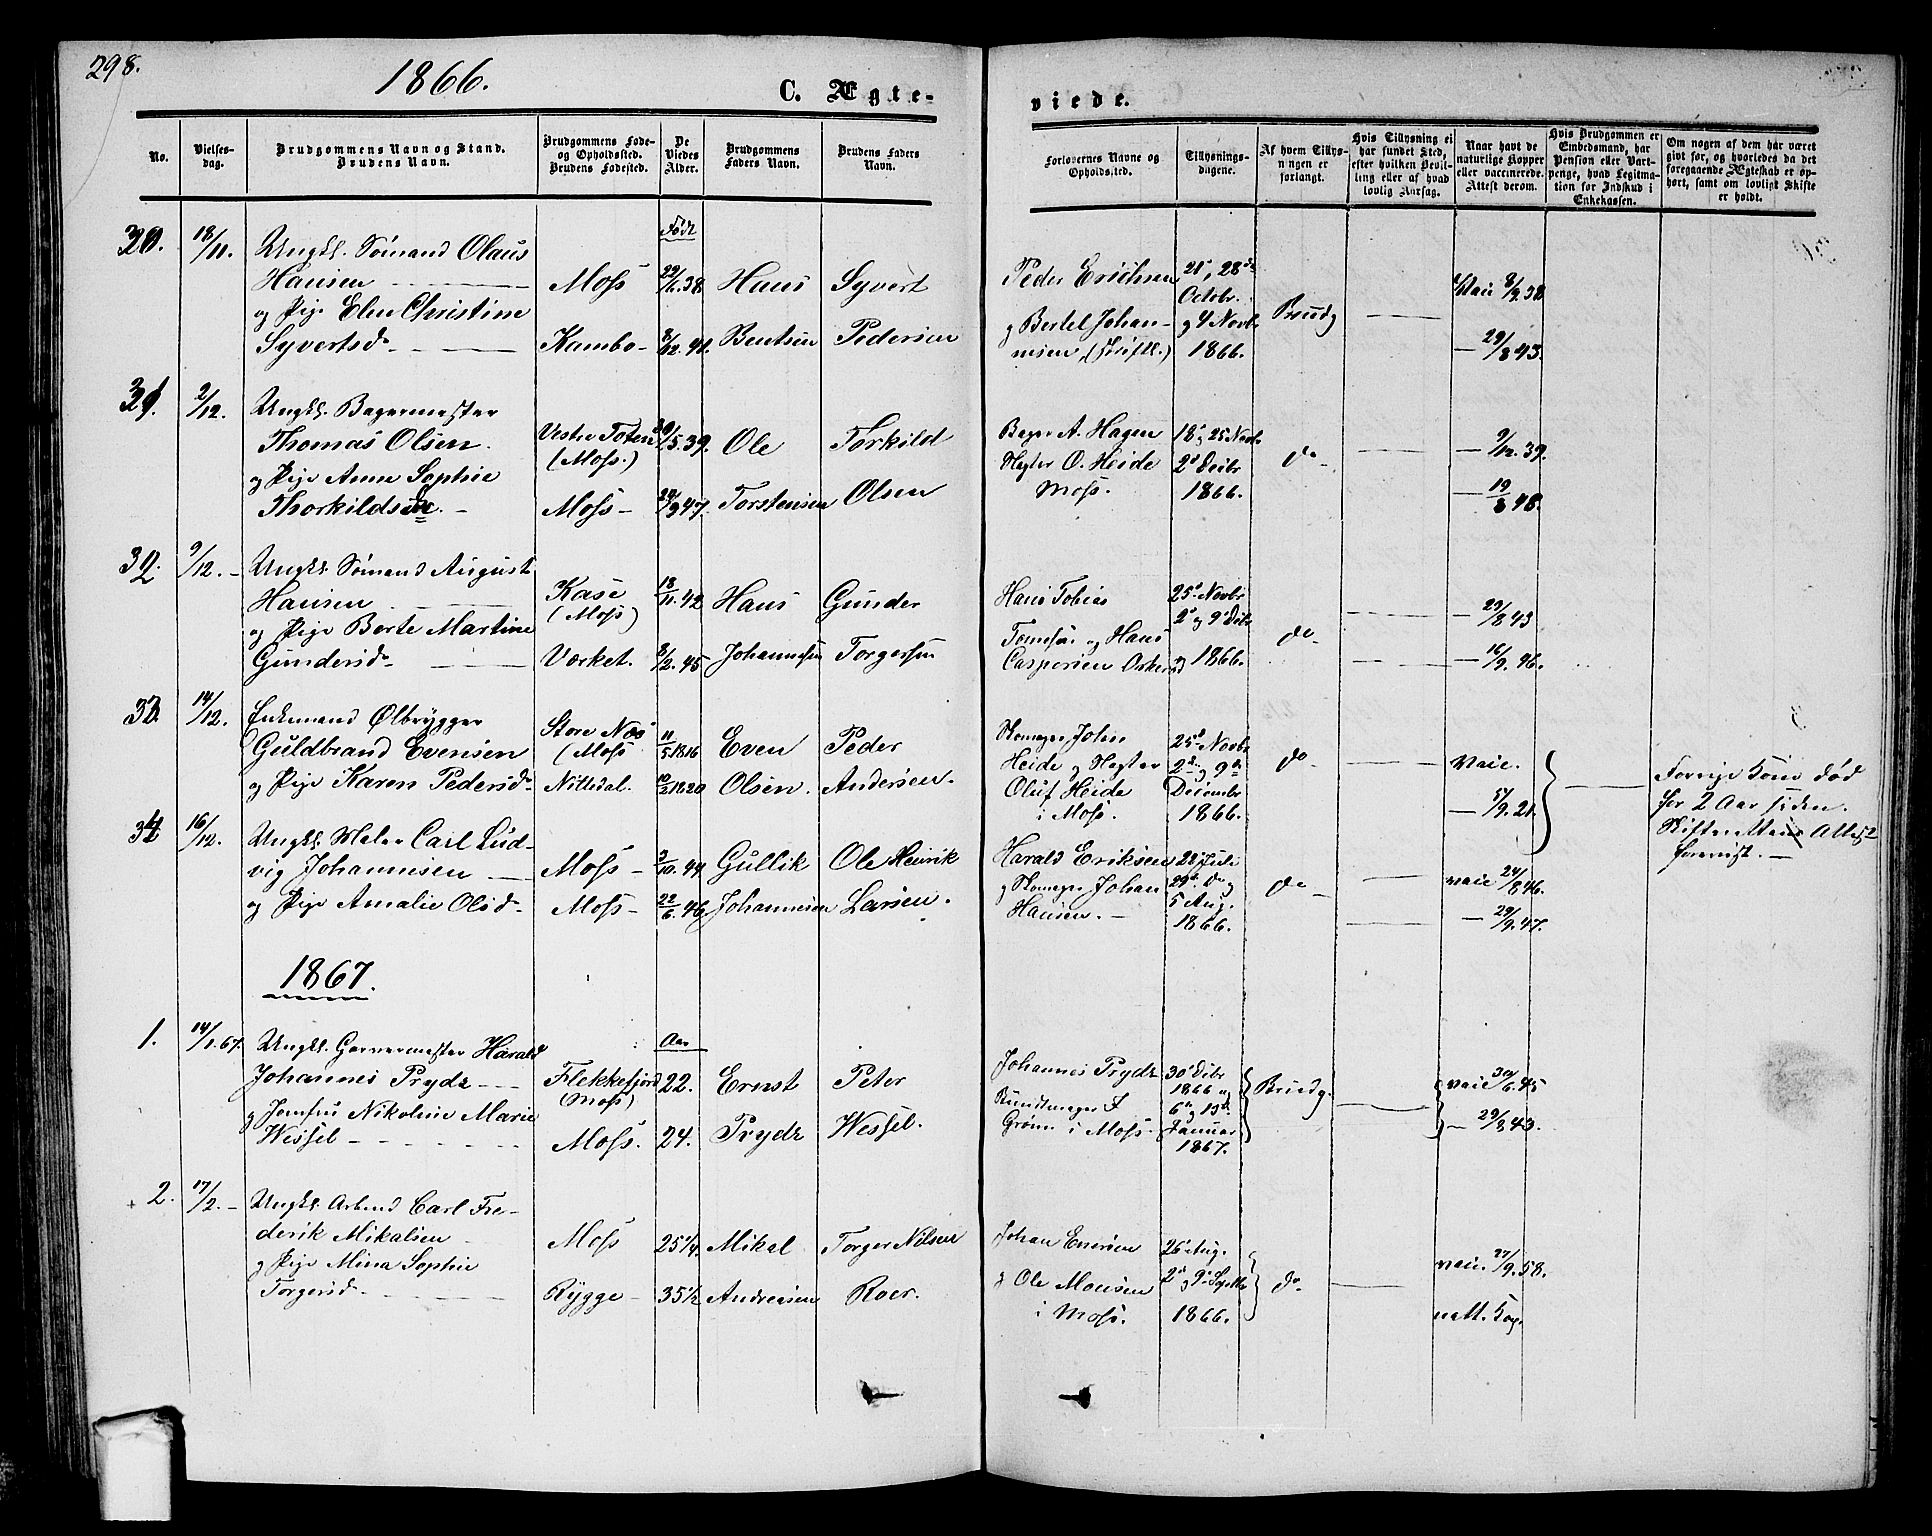 298.
1866.
C. Ægte-
viede.
No.
Vielses-
dag.
Brudgommens Navn og Stand.
Brudens Navn.
Brudgommens Føde-
og Opholdssted.
Brudens Fødested.
De
Viedes
Alder.
Brudgommens
Faders Navn.
Brudens Faders
Navn.
Forlovernes Navne og
Opholdssted.
Tillysnings-
dagene.
Af hvem Tillys-
ningen er
forlangt.
Hvis Tillysning ei
har fundet Sted,
efter hvilken Bevil-
ling eller af hvad
lovlig Aarsag.
Naar havt de
naturlige Kopper
eller vaccinerede.
Attest derom.
Hvis Brudgommen er
Embedsmand, har
Pension eller Vart-
penge, hvad Legitima-
tion for Indskud i
Enkekassen.
Om nogen af dem har været
gift før, og hvorledes da det
foregaaende Ægteskab er op-
hørt, samt om lovligt Skifte
er holdt.
30. 18/11. Ungkl. Sømand Olaus
Hansen
og Pige Elen Christine
Syvertsd.
Moss
Kambo
Født
22/6.38
8/12.41.
Hans
Bentsen
Syvert
Pedersen
Peder Erichsen
og Bertel Johan-
nesen (skriftl.)
21, 28de
Octobr.
og 4 Novbr
1866.
Brudg
vac 8/9.38
29/8 43.
31. 2/12. Ungkl. Bagermester
Thomas Olsen.
og Pige Anne Sophie
Thorkildsd.
Vestre Toten
(Moss.)
Moss
/5.39.
/9 47.
Ole
Torstensen
Torkild
Olsen
Bager A. Hagen
O. Heide
Moss.
18 og 25 Novbr
2 Decbr
1866.
do
9/12.39.
19/8 48.
32. 9/12. Ungkl. Sømand August
Hansen
og Pige Berte Martine
Gundersd.
Kase
(Moss)
Værket.
18/11.42
8/2.45
Hans
Johannesen
Gunder
Torgersen
Hans Tobias
Tomesen og Hans
Caspersen
25 Novbr
2 og 9 Decbr
1866.
do
29/8 43
16/9.46.
33. 14/12. Enkemand Ølbrygger
Guldbrand Evensen
og Pige Karen Pedersd.
Store Næs
(Moss
Nittedal.
11/5 1816
1820
Even
Olsen.
Peder
Andersen.
Skomager John
Heide og
Oluf Heide
i Moss.
25 Novbr
2 og 9
Decembr
1866.
do
vacc.
5/9.21.
Forrige Kone død
for 2 Aar siden.
Skifterettens Attest
forevist.
34 16/12. Ungkl. Maler Carl Lud-
vig Johannesen
og Pige Amalie Olsd.
Moss
Moss
/10.44
22/6.46
Gullik
Johannesen
Ole Henrik
Larsen.
Harald Eriksen
og Skomager Johan
Hansen.
22 Juli
29 do og
5 Aug.
1866.
do
vacc 24/8 46.
29/9.47.
1867.
1. 14/1.67. Ungkl. Garvermester Harald
Johannes Prydz
og Jomfru Nikoline Marie
Wessel
Flekkefjord
(Moss)
Moss.
Aar
22.
24.
Ernst
Prydz
Peter
Wessel.
Johannes Prydz
Buntmager
Grønn i Moss.
30 Decbr
1866 og
6 og 13
Januar
1867.
Brudg.
vacc 30/6.45
29/8 43.
2. 17/2. Ungkl. Arbmd Carl Fre-
derik Mikalsen
og Pige Mina Sophie
Torgersd.
Moss
Rygge
25 1/4.
35 1/2
Mikal
Andreasen
Torger Nilsen
Roer.
Johan Enersen
og Ole Monsen
i Moss.
26 Aug.
2 og 9 Septbr
1866.
do
vacc. 27/9.58.
natt. Kop.